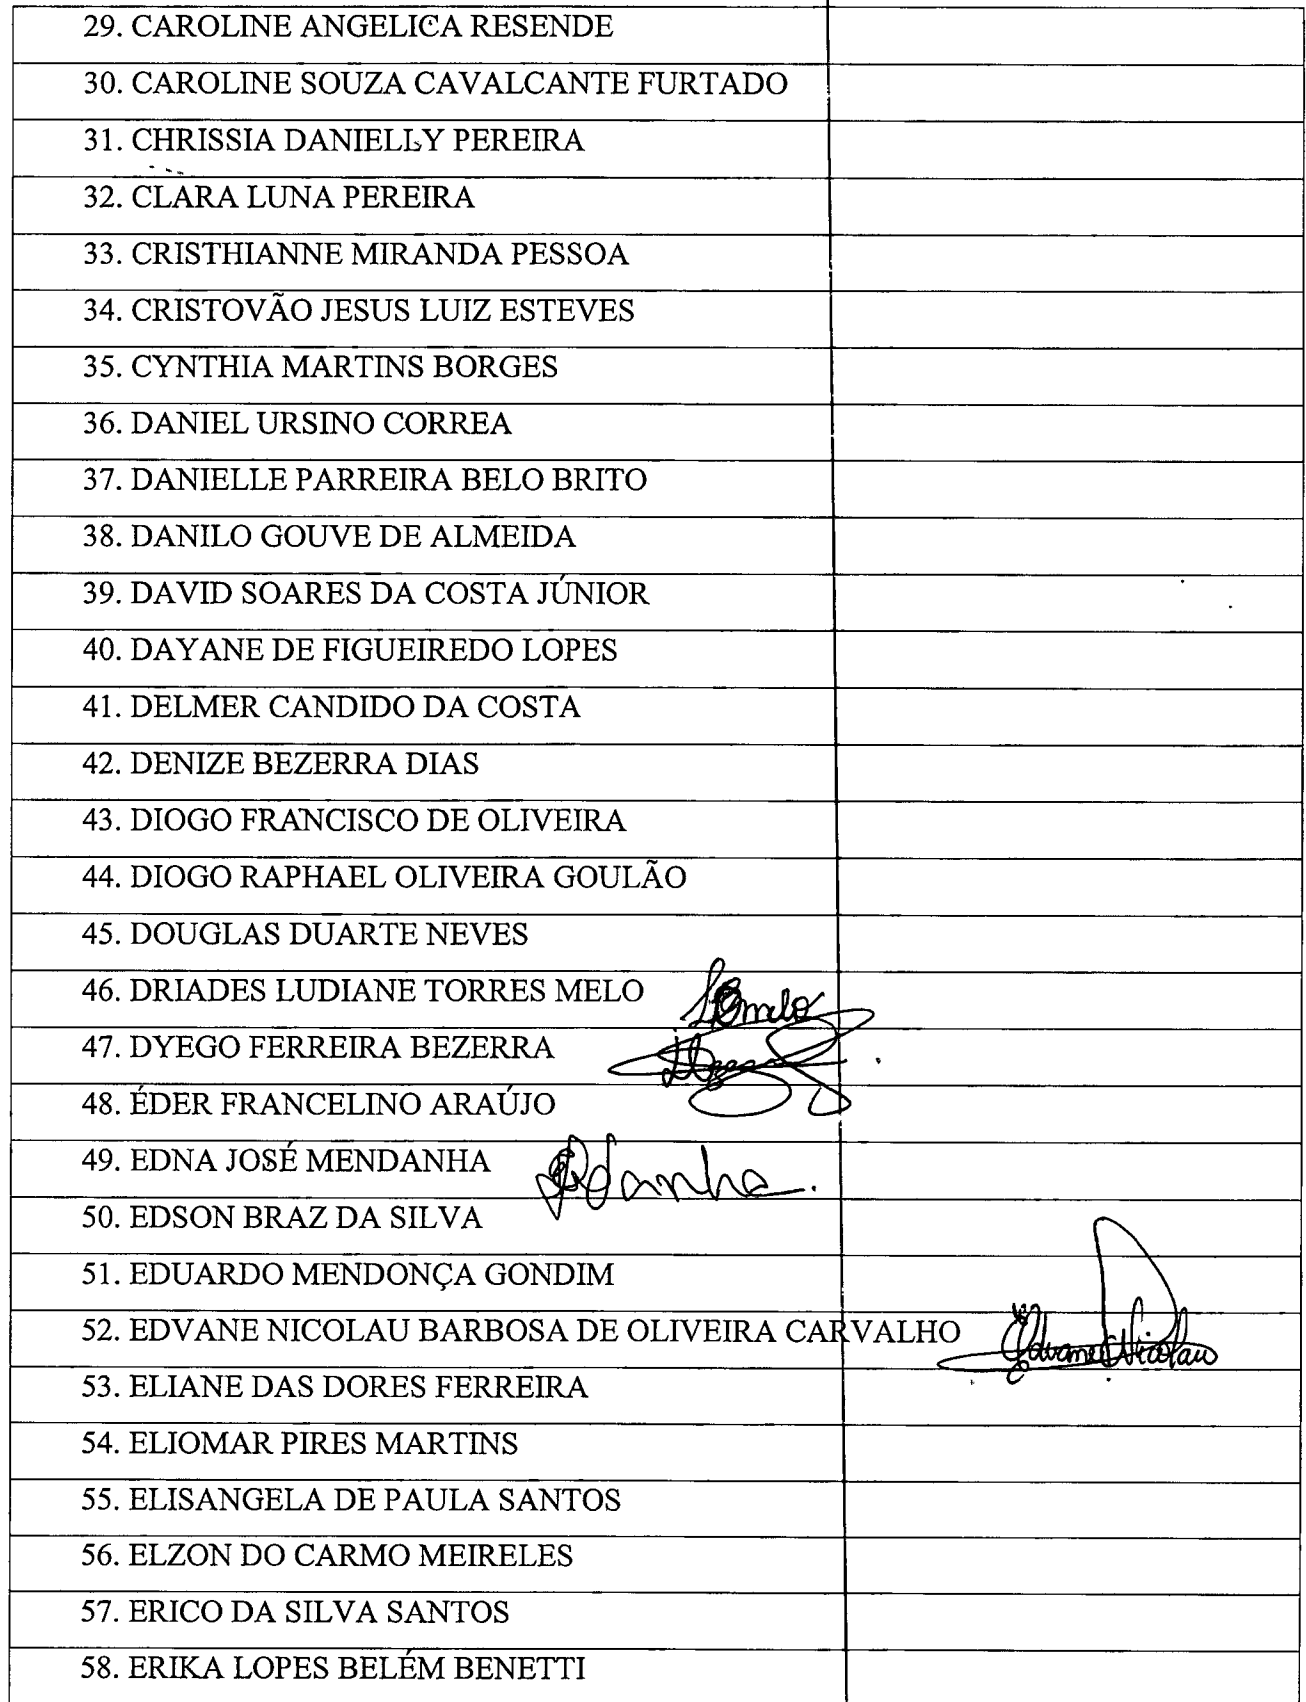 29. CAROLINE ANGELICA RESENDE
30. CAROLINE SOUZA CAVALCANTE FURTADO
31. CHRISSIA DANIELLY PEREIRA
32. CLARA LUNA PEREIRA
33. CRISTHIANNE MIRANDA PESSOA
34. CRISTOVÃO JESUS LUIZ ESTEVES
35. CYNTHIA MARTINS BORGES
36. DANIEL URSINO CORREA
37. DANIELLE PARREIRA BELO BRITO
38. DANILO GOUVE DE ALMEIDA
39. DAVID SOARES DA COSTA JÚNIOR
40. DAYANE DE FIGUEIREDO LOPES
41. DELMER CANDIDO DA COSTA
42. DENIZE BEZERRA DIAS
43. DIOGO FRANCISCO DE OLIVEIRA
44. DIOGO RAPHAEL OLIVEIRA GOULÃO
45. DOUGLAS DUARTE NEVES
46. DRIADES LUDIANE TORRES MELO
47. DYEGO FERREIRA BEZERRA
48. ÉDER FRANCELINO ARAÚJO
49. EDNA JOSÉ MENDANHA
50. EDSON BRAZ DA SILVA
51. EDUARDO MENDONÇA GONDIM
52. EDVANE NICOLAU BARBOSA DE OLIVEIRA CARVALHO Edvane Nicolau
53. ELIANE DAS DORES FERREIRA
54. ELIOMAR PIRES MARTINS
55. ELISANGELA DE PAULA SANTOS
56. ELZON DO CARMO MEIRELES
57. ERICO DA SILVA SANTOS
58. ERIKA LOPES BELÉM BENETTI